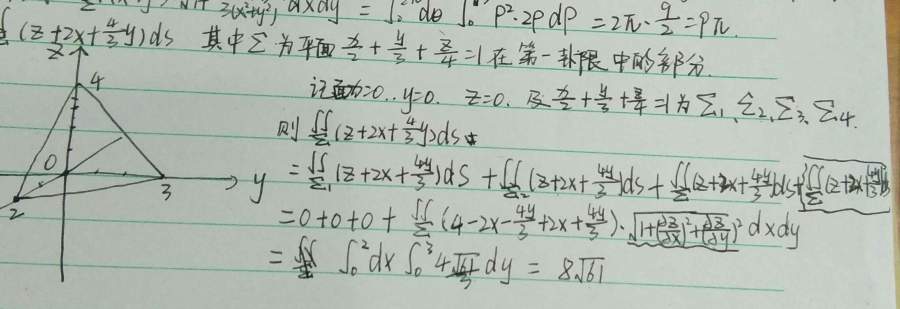 3(x²+y²) dxdy = ∫ dθ ∫₀ ρ²·2ρ dρ = 2π·9/2 = 9π.
(z+2x+4/3y)ds 其中Σ为平面 x/2+y/3+z/4=1在第一卦限中的部分.
z
4
记面x=0.. y=0. z=0. 及 x/2+y/3+z/4=1为Σ₁、Σ₂、Σ₃、Σ₄.
则∬Σ(z+2x+4/3y)ds
0
y
3
2
=∬Σ₁(z+2x+4y/3)dS+∬Σ₂(z+2x+4y/3)ds+∬Σ(z+2x+4y/3)ds+∬Σ(z+2x+4y/3)ds
=0+0+0+∬Σ(4-2x-4y/3+2x+4y/3)·√1+(∂z/∂x)²+(∂z/∂y)² dxdy
= ∫₀²dx∫₀³4√61/3 dy = 8√61